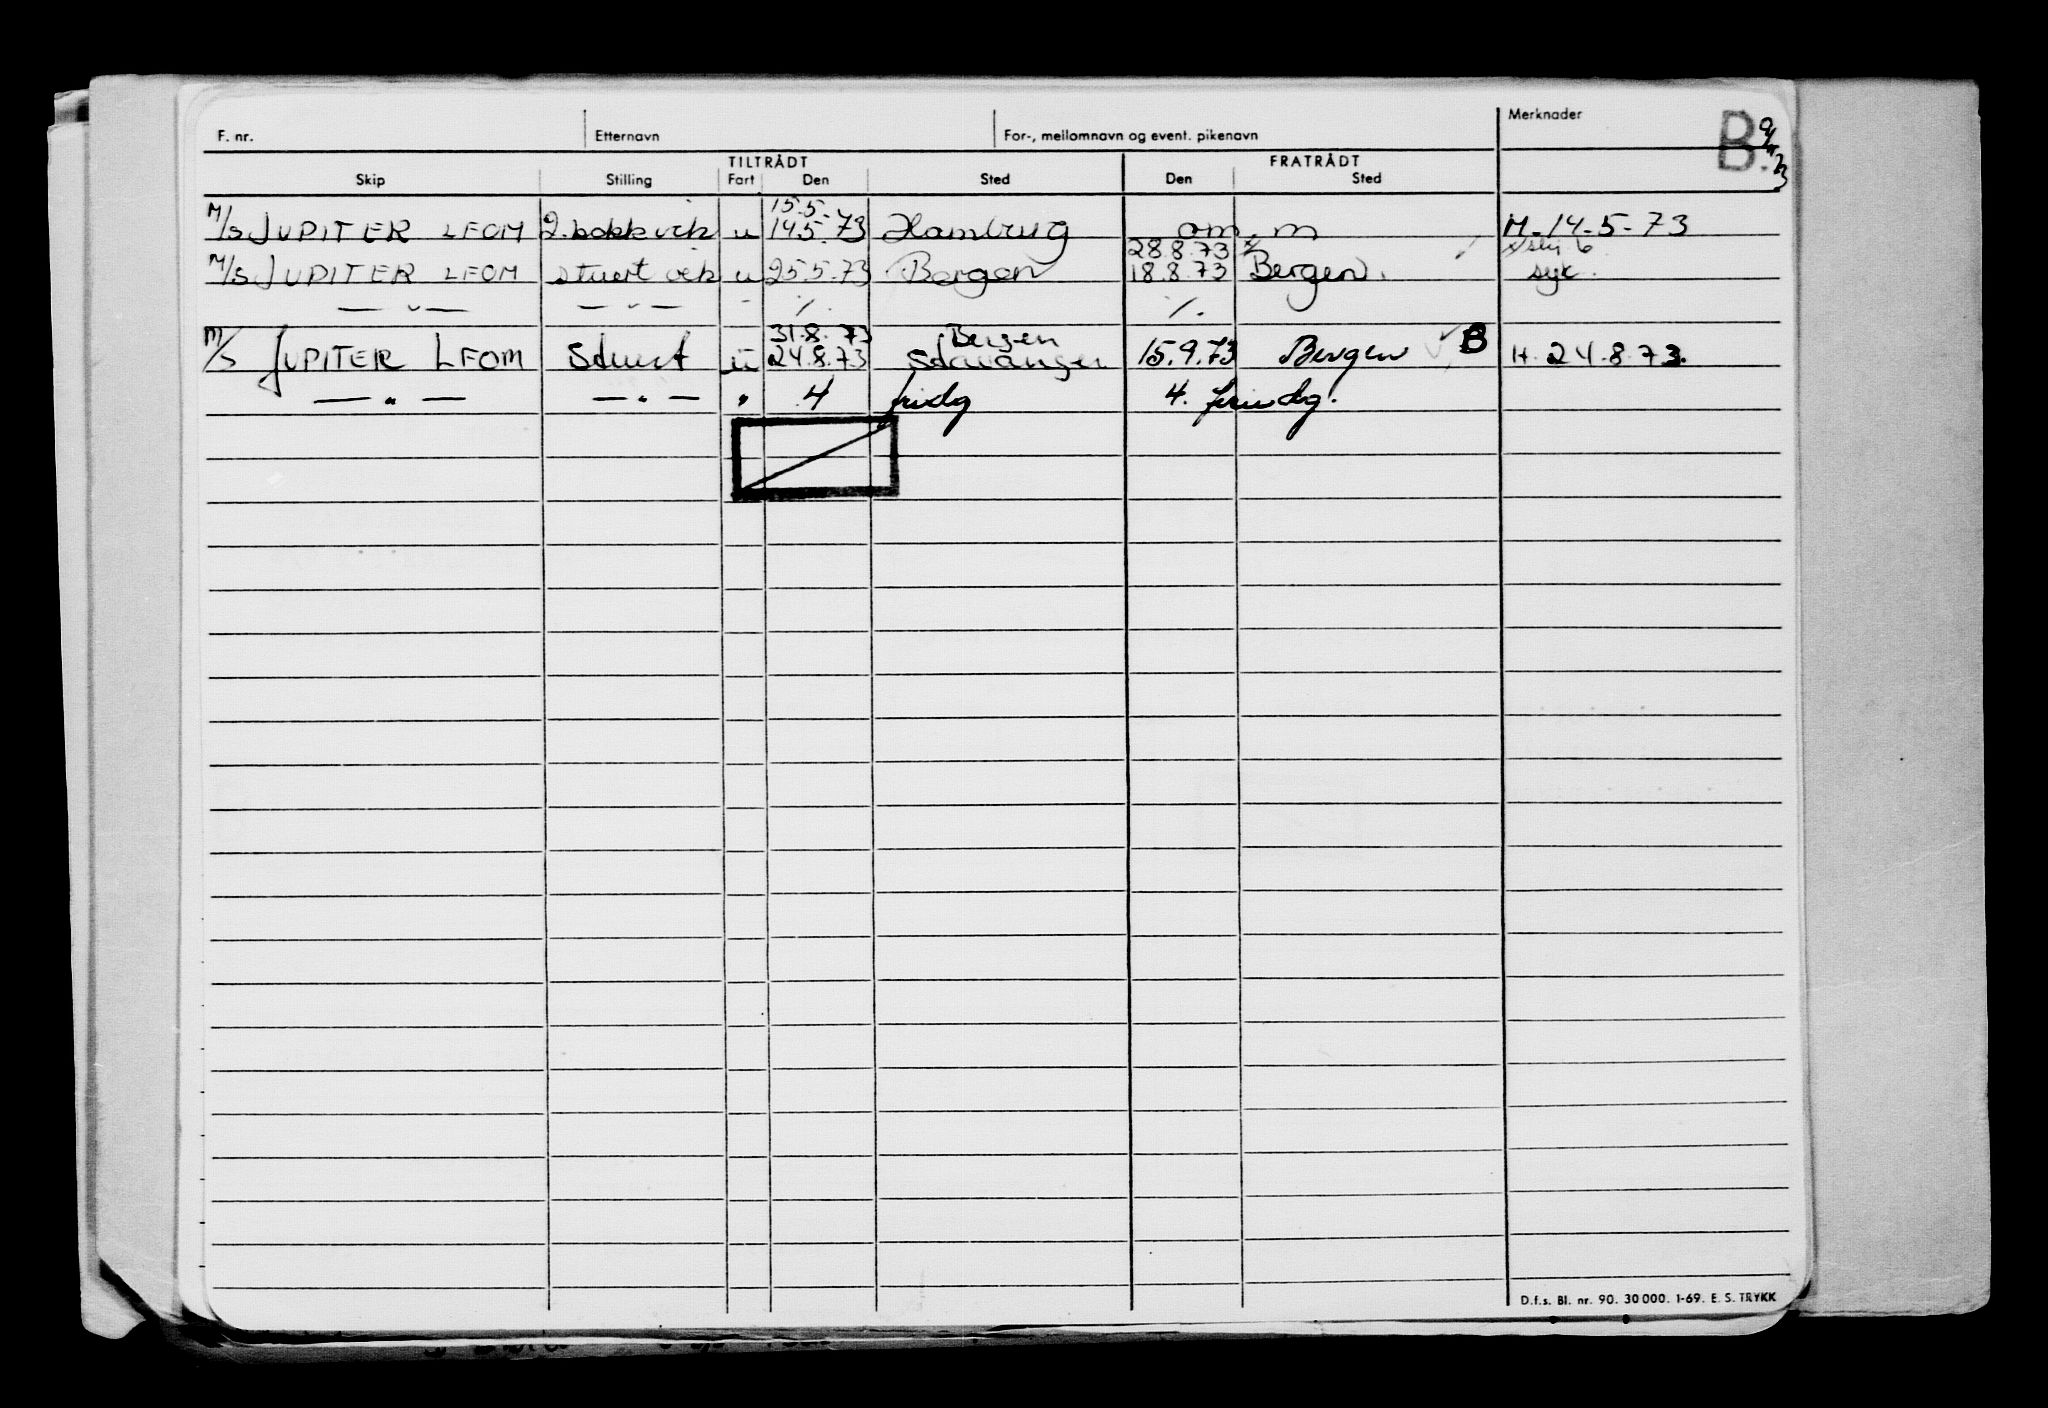 F. nr. Etternavn For-, mellomnavn og event. pikenavn Merknader B.
TILTRÅDT FRATRÅDT
Skip Stilling Fart Den Sted Den Sted
15.5-
M/S JUPITER LFOM 2. kokk vik u 14.5.73 Hambrug om. m M-14-5-73
28.8.73 x/
M/S JUPITER LFOM stuert vik u 25.5.73 Bergen 18.8.73 Bergen. syk.
— " — — " — - ·/. ·/.
31.8.73 Bergen
M/S JUPITER LFOM Stuert u 24.8.73 Stavanger 15.9.73 Bergen B H. 24.8.73.
— " — — " — " 4 fridg 4. fridg.
D.f.s. Bl. nr. 90. 30 000. 1-69. E. S. TRYKK